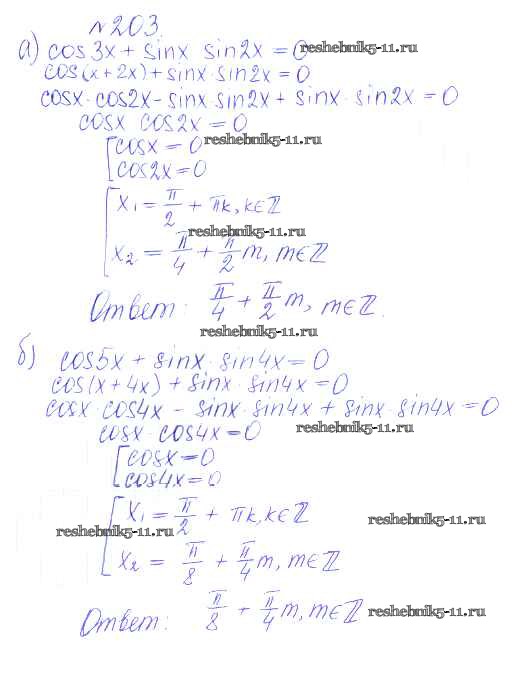 №203.
а) cos3x + sinx sin2x = 0 reshebnik5-11.ru
cos(x+2x) + sinx·sin2x = 0
cosx·cos2x - sinx sin2x + sinx·sin2x = 0
cosx cos2x = 0
[cosx = 0 reshebnik5-11.ru
cos2x = 0
[x₁ = π/2 + πk, k∈ℤ
reshebnik5-11.ru
x₂ = π/4 + π/2 m, m∈ℤ
Ответ: π/4 + π/2 m, m∈ℤ.
reshebnik5-11.ru
б) cos5x + sinx·sin4x = 0
cos(x+4x) + sinx·sin4x = 0
cosx·cos4x - sinx·sin4x + sinx·sin4x = 0
cosx·cos4x = 0 reshebnik5-11.ru
[cosx = 0
cos4x = 0
[x₁ = π/2 + πk, k∈ℤ reshebnik5-11.ru
reshebnik5-11.ru
x₂ = π/8 + π/4 m, m∈ℤ
Ответ: π/8 + π/4 m, m∈ℤ reshebnik5-11.ru